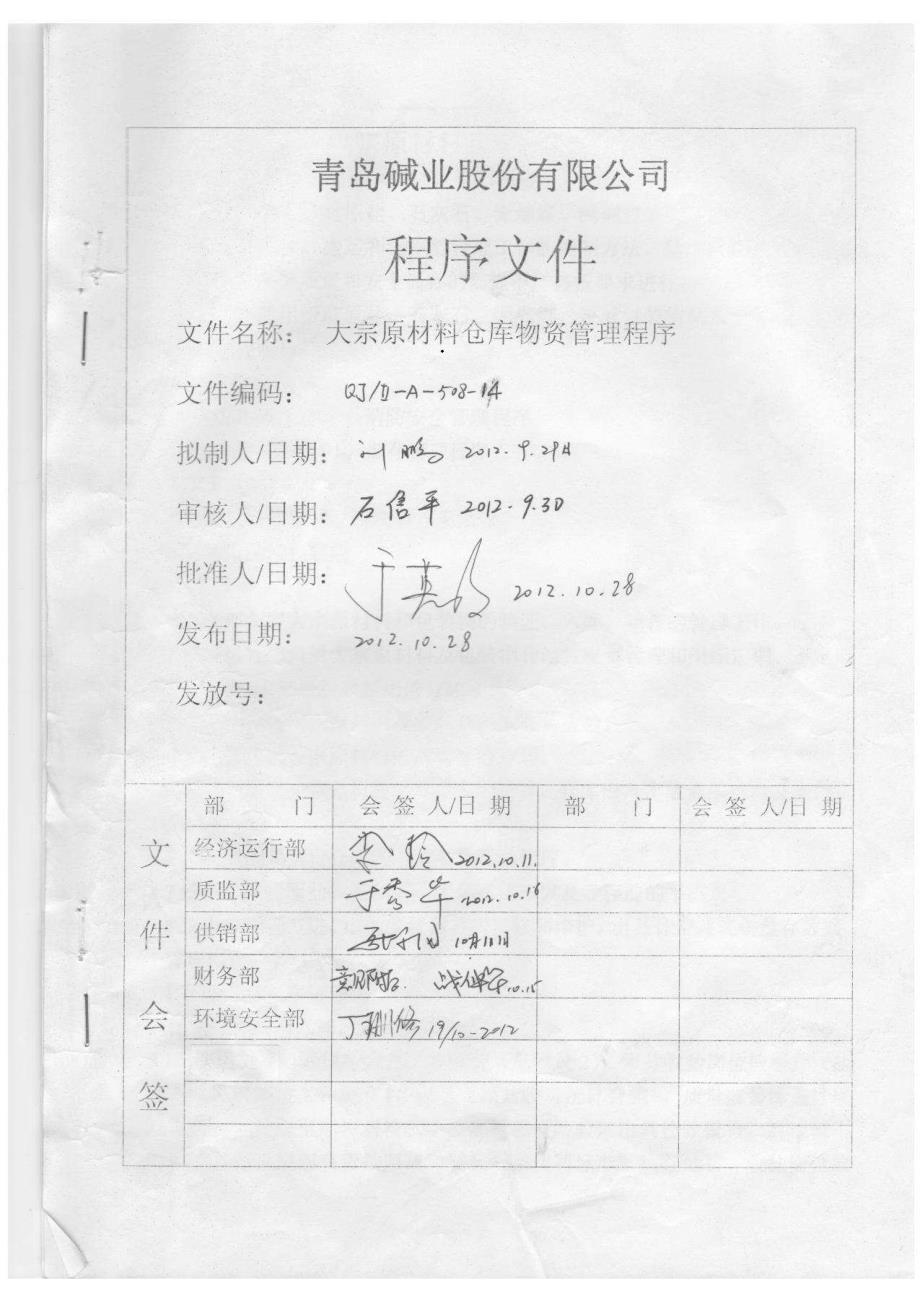 青岛碱业股份有限公司
程序文件
文件名称： 大宗原材料仓库物资管理程序
文件编码： QJ/D-A-508-14
拟制人/日期： 刘鹏 2012.9.29日
审核人/日期： 石信平 2012.9.30
批准人/日期： 于英 2012.10.28
发布日期： 2012.10.28
发放号：
文件会签
部 门 会签人/日期 部 门 会签人/日期
经济运行部 2012.10.11.
质监部 于秀华 2012.10.16
供销部 10月11日
财务部 10.15
环境安全部 丁 19/10-2012